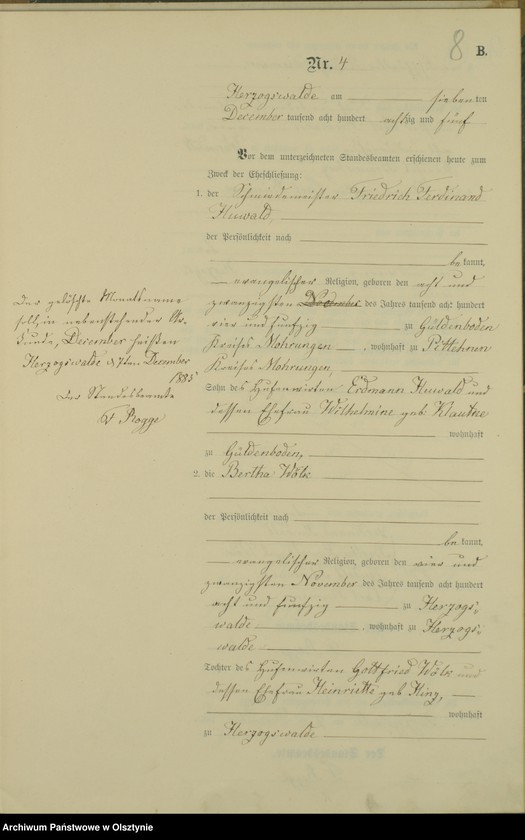 8 B.
Nr. 4
Herzogswalde am siebenten
December tausend acht hundert achtzig und fünf
Vor dem unterzeichneten Standesbeamten erschienen heute zum
Zweck der Eheschließung:
1. der Schmiedemeister Friedrich Ferdinand
Kuwald,
der Persönlichkeit nach
bekannt,
evangelischer Religion, geboren den acht und
zwanzigsten December des Jahres tausend acht hundert
vier und fünfzig zu Güldenboden
Kreises Mohrungen, wohnhaft zu Pittehnen
Kreises Mohrungen,
Sohn des Hufenwirten Erdmann Kuwald und
dessen Ehefrau Wilhelmine geb Klautke
wohnhaft
zu Güldenboden,
2. die Bertha Wölk
der Persönlichkeit nach
bekannt,
evangelischer Religion, geboren den vier und
zwanzigsten November des Jahres tausend acht hundert
acht und fünfzig zu Herzogs-
walde, wohnhaft zu Herzogs-
walde
Tochter des Hufenwirten Gottfried Wölk und
dessen Ehefrau Heinriette geb King,
wohnhaft
zu Herzogswalde
Der gelöschte Monatsname
soll in nebenstehender Ur-
kunde, December heißen
Herzogswalde d 7ten December
1885
Der Standesbeamte
Rogge
Archiwum Państwowe w Olsztynie